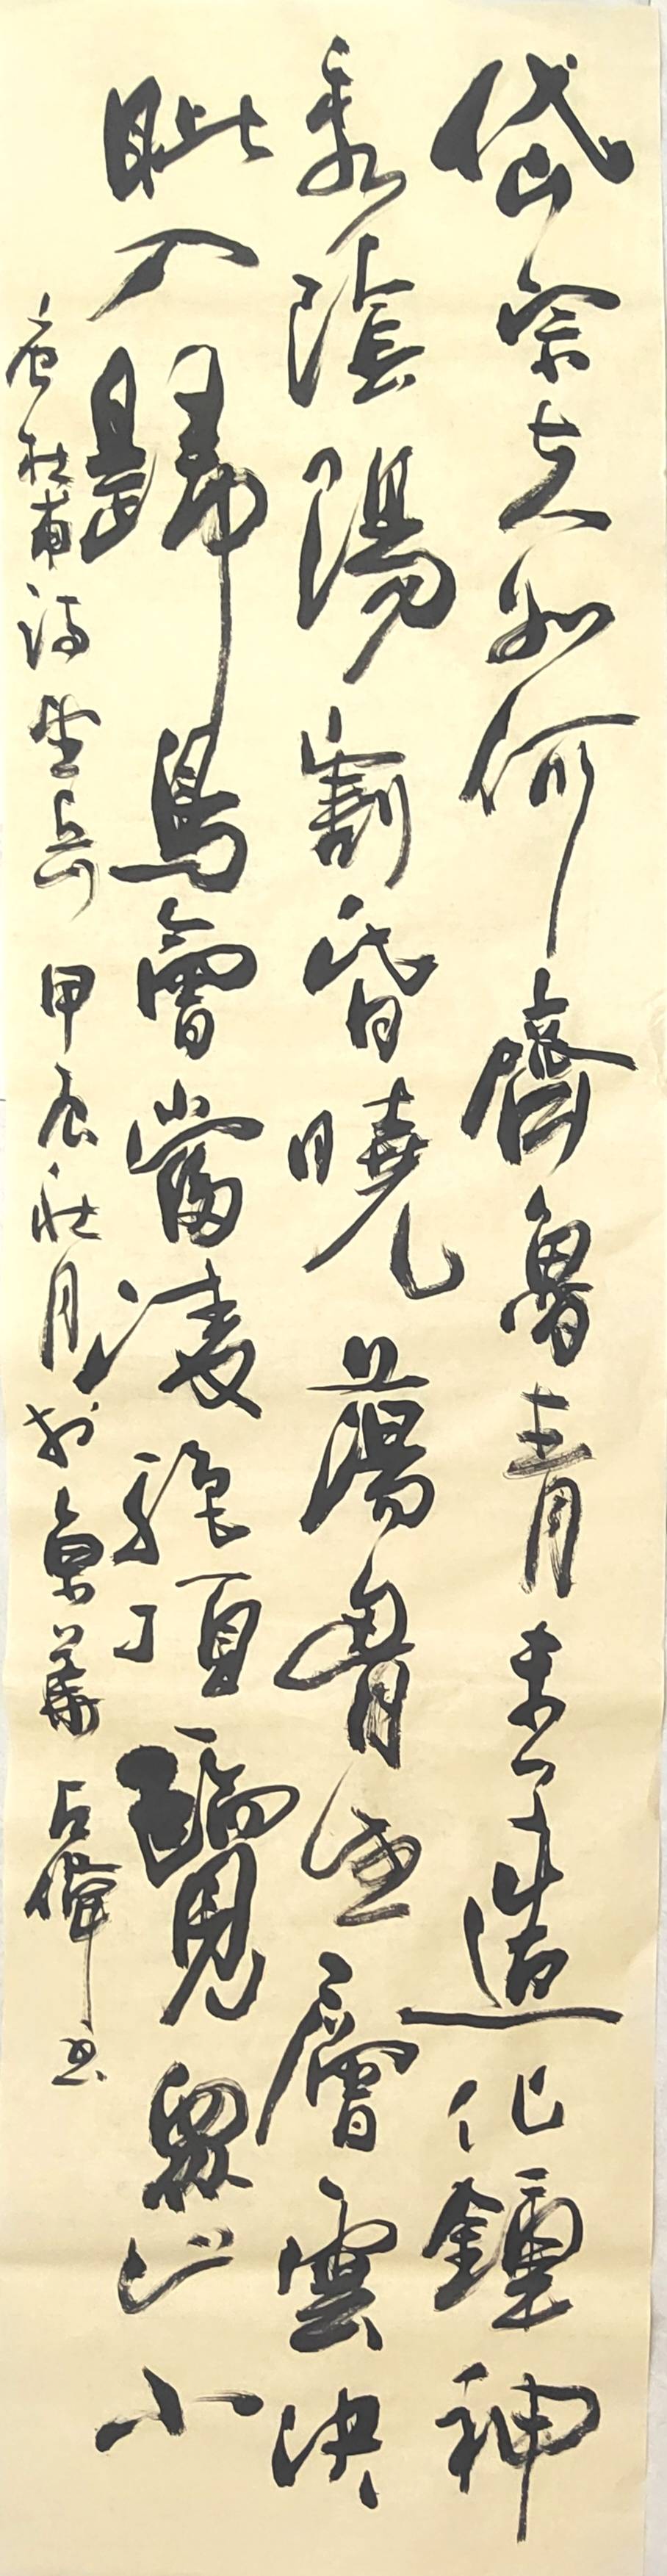 岱宗夫如何齊魯青未了造化鍾神
秀陰陽割昏曉蕩胷生層雲決
眦入歸鳥會當凌絕頂一覽眾山小
唐杜甫詩望岳甲辰壯月於京華占偉書